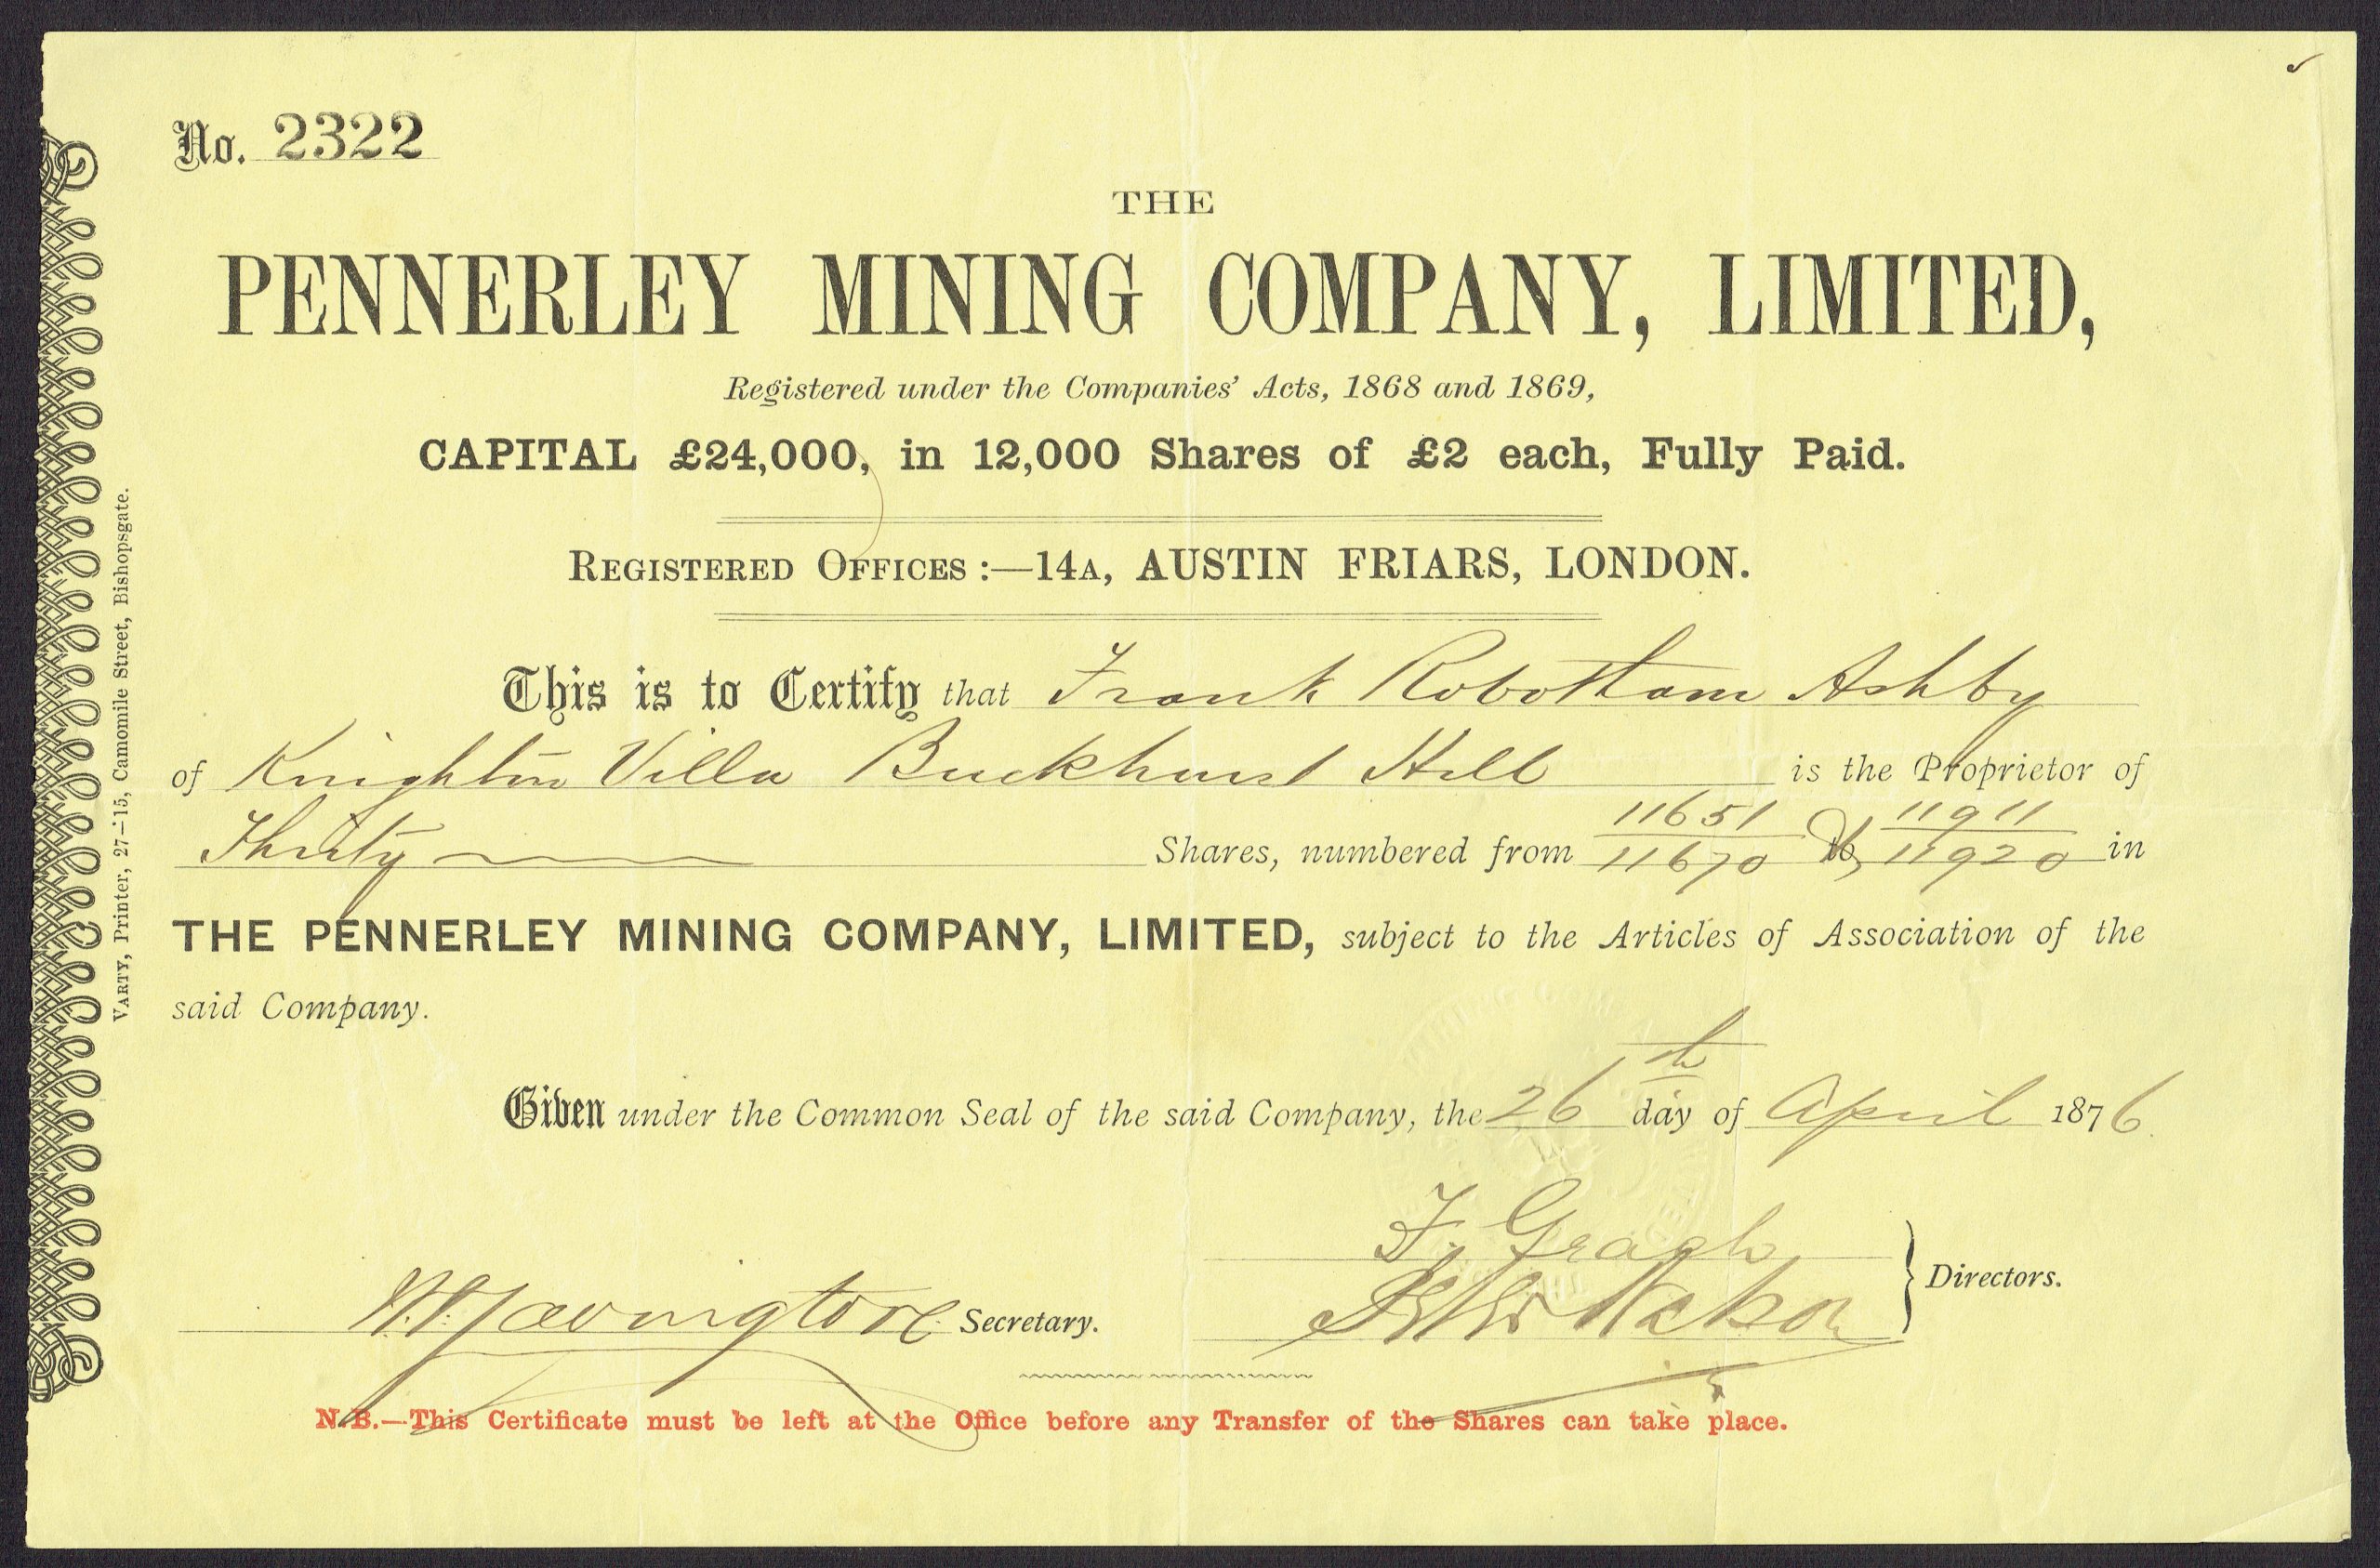 No. 2322
THE
PENNERLEY MINING COMPANY, LIMITED,
Registered under the Companies' Acts, 1868 and 1869,
CAPITAL £24,000, in 12,000 Shares of £2 each, Fully Paid.
REGISTERED OFFICES :—14A, AUSTIN FRIARS, LONDON.
This is to Certify that Frank Robottam Ashby
of Knighton Villa Buckhurst Hill is the Proprietor of
11651 11911
Thirty Shares, numbered from 11670 to 11920 in
THE PENNERLEY MINING COMPANY, LIMITED, subject to the Articles of Association of the
said Company.
Given under the Common Seal of the said Company, the 26th day of April 1876.
F.
Directors.
Secretary.
N.B.—This Certificate must be left at the Office before any Transfer of the Shares can take place.
VARTY, Printer, 27–15, Camomile Street, Bishopsgate.